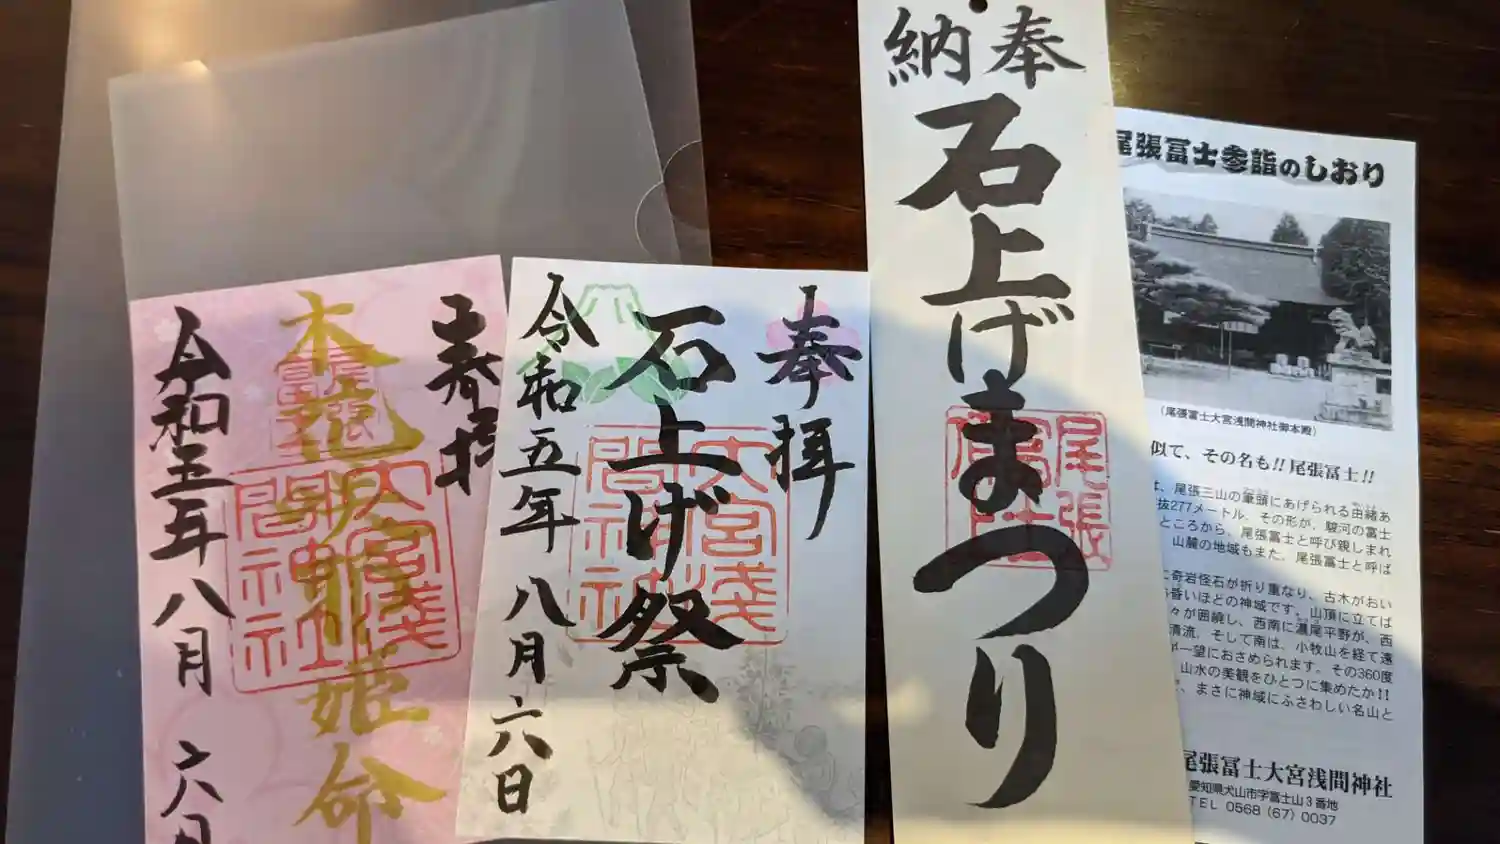 奉拝
木花開耶姫命
令和五年八月六日
大宮浅間神社
奉拝
石上げ祭
令和五年八月六日
大宮浅間神社
奉納
石上げまつり
尾張冨士
尾張冨士参詣のしおり
(尾張冨士大宮浅間神社御本殿)
似て、その名も!!尾張冨士!!
は、尾張三山の筆頭にあげられる由緒あ
抜277メートル。その形が、駿河の富士
ところから、尾張冨士と呼び親しまれ
山麓の地域もまた、尾張冨士と呼ば
に奇岩怪石が折り重なり、古木がおい
昏いほどの神域です。山頂に立てば
々が囲繞し、西南に濃尾平野が、西
清流、そして南は、小牧山を経て遠
一望におさめられます。その360度
山水の美観をひとつに集めたか!!
、まさに神域にふさわしい名山と
尾張冨士大宮浅間神社
愛知県犬山市字冨士山3番地
TEL 0568(67)0037